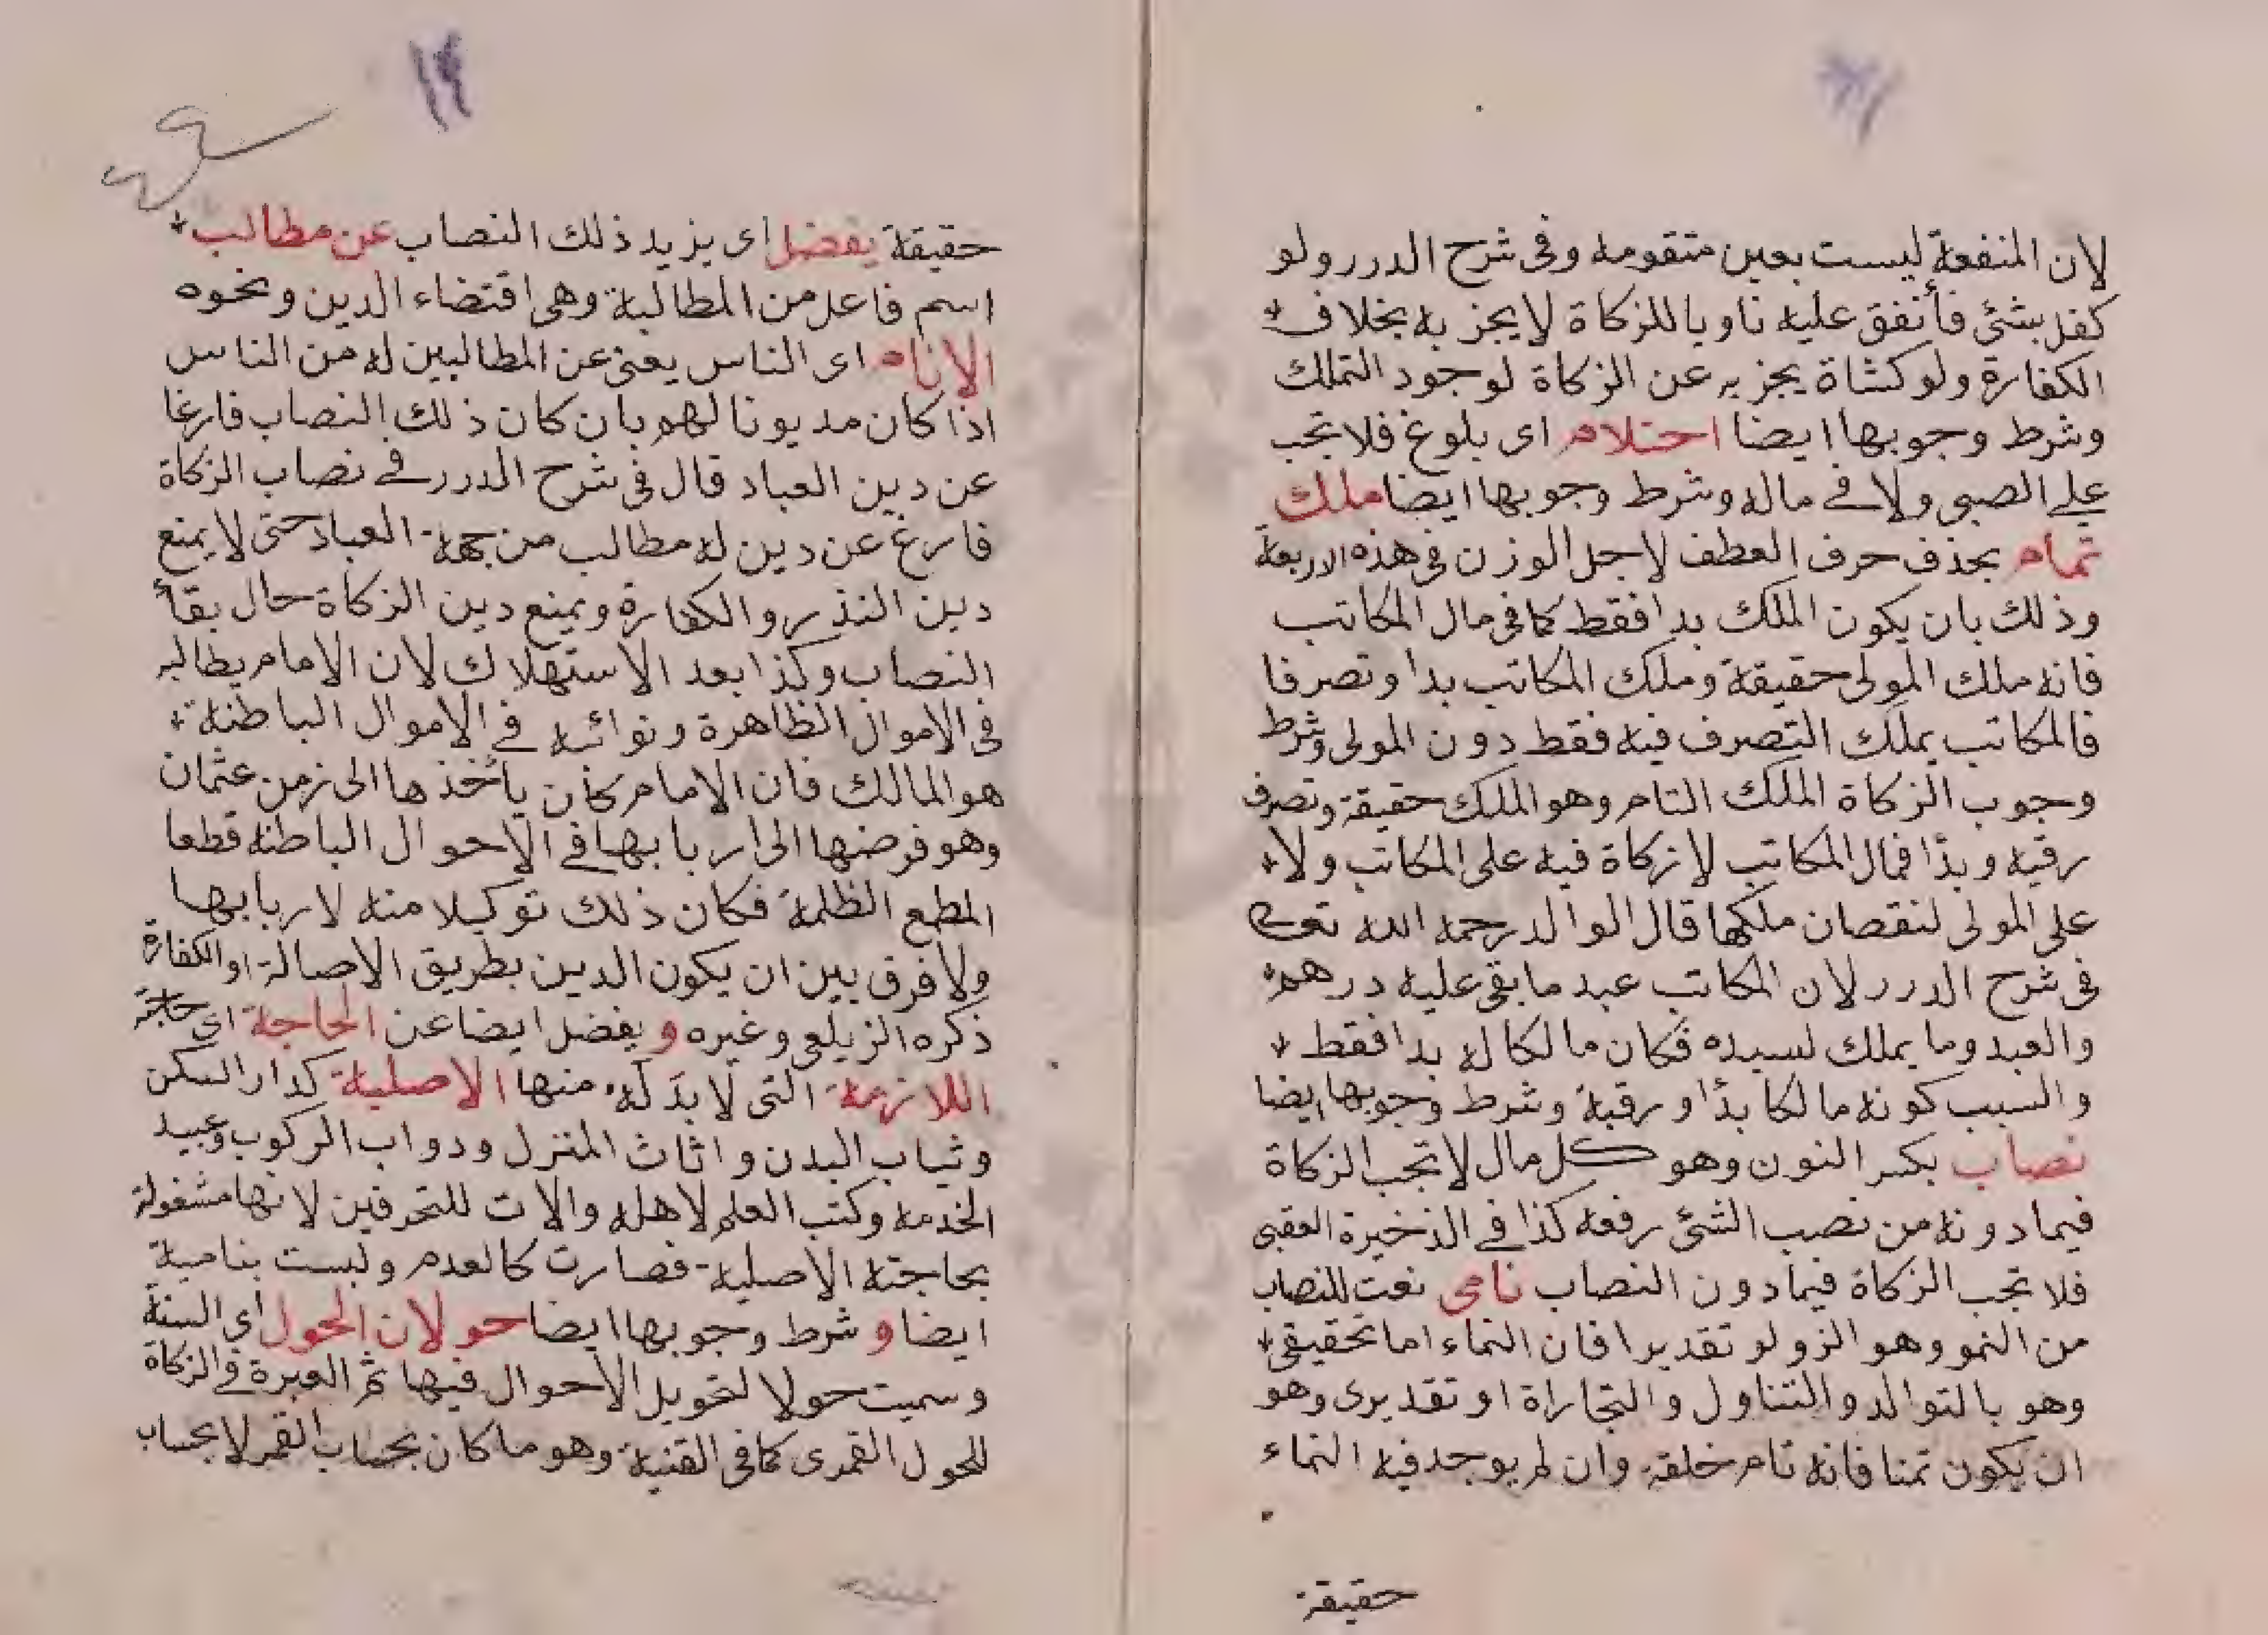 لان المنفعة ليست بعين متقومه وفى شرح الدرر ولو
كفل بشئ فأنفق عليه ناويا للزكاة لا يجزيه بخلاف
الكفارة ولو كشاة يجزيه عن الزكاة لوجود التملك
وشرط وجوبها ايضا احتلام اى بلوغ فلا تجب
على الصبى ولا فى ماله وشرط وجوبها ايضا ملك
تمام بحذف حرف العطف لاجل الوزن فى هذه الاربعة
وذلك بان يكون الملك يدا فقط كما فى مال المكاتب
فانه ملك المولى حقيقة وملك المكاتب يدا وتصرفا
فالمكاتب يملك التصرف فيه فقط دون المولى وشرط
وجوب الزكاة الملك التام وهو الملك حقيقة وتصرف
رقبه ويدًا فمال المكاتب لا زكاة فيه على المكاتب ولا
على المولى لنقصان ملكها قال الوالد رحمه الله تعالى
فى شرح الدرر لان المكاتب عبد ما بقى عليه درهم
والعبد وما يملك لسيده فكان مالكا له يدا فقط
والسبب كونه مالكا يدًا ورقبة وشرط وجوبها ايضا
نصاب بكسر النون وهو كل مال لا تجب الزكاة
فيما دونه من نصب الشئ رفعه كذا فى الذخيرة العقبى
فلا تجب الزكاة فيما دون النصاب نامى نعت للنصاب
من النمو وهو الزو لو تقديرا فان النماء اما تحقيقى
وهو بالتوالد والتناول والتجاراة او تقديرى وهو
ان يكون تمنا فانه تام خلقة وان لم يوجد فيه النماء
حقيقة
١٤
حقيقة يفضل اى يزيد ذلك النصاب عن مطالب
اسم فاعل من المطالبة وهى اقتضاء الدين ونحوه
الانام اى الناس يعنى عن المطالبين له من الناس
اذا كان مديونا لهم بان كان ذلك النصاب فارغا
عن دين العباد قال فى شرح الدرر فى نصاب الزكاة
فارغ عن دين له مطالب من جهة العباد حتى لا يمنع
دين النذر والكفارة ويمنع دين الزكاة حال بقأ
النصاب وكذا بعد الاستهلاك لان الامام يطالبه
فى الاموال الظاهرة ونوائبه فى الاموال الباطنة
هو المالك فان الامام كان يأخذها الى زمن عثمان
وهو فرضها الى اربابها فى الاحوال الباطنه قطعا
المطع الظلمة فكان ذلك توكيلا منه لاربابها
ولا فرق بين ان يكون الدين بطريق الاصالة او الكفارة
ذكره الزيلعى وغيره و يفضل ايضا عن الحاجة اى حاجته
اللازمة التى لا بد له منها الاصلية كدار السكن
وثياب البدن واثاث المنزل ودواب الركوب وعبيد
الخدمه وكتب العلم لاهله والات للتحرفين لانها مشغولة
بحاجته الاصلية فصارت كالعدم وليست بنامية
ايضا و شرط وجوبها ايضا حولان الحول اى السنة
وسميت حولا لتحويل الاحوال فيها ثم العبرة فى الزكاة
للحول القمرى كما فى القنية وهو ما كان بحساب القمر لا بحساب